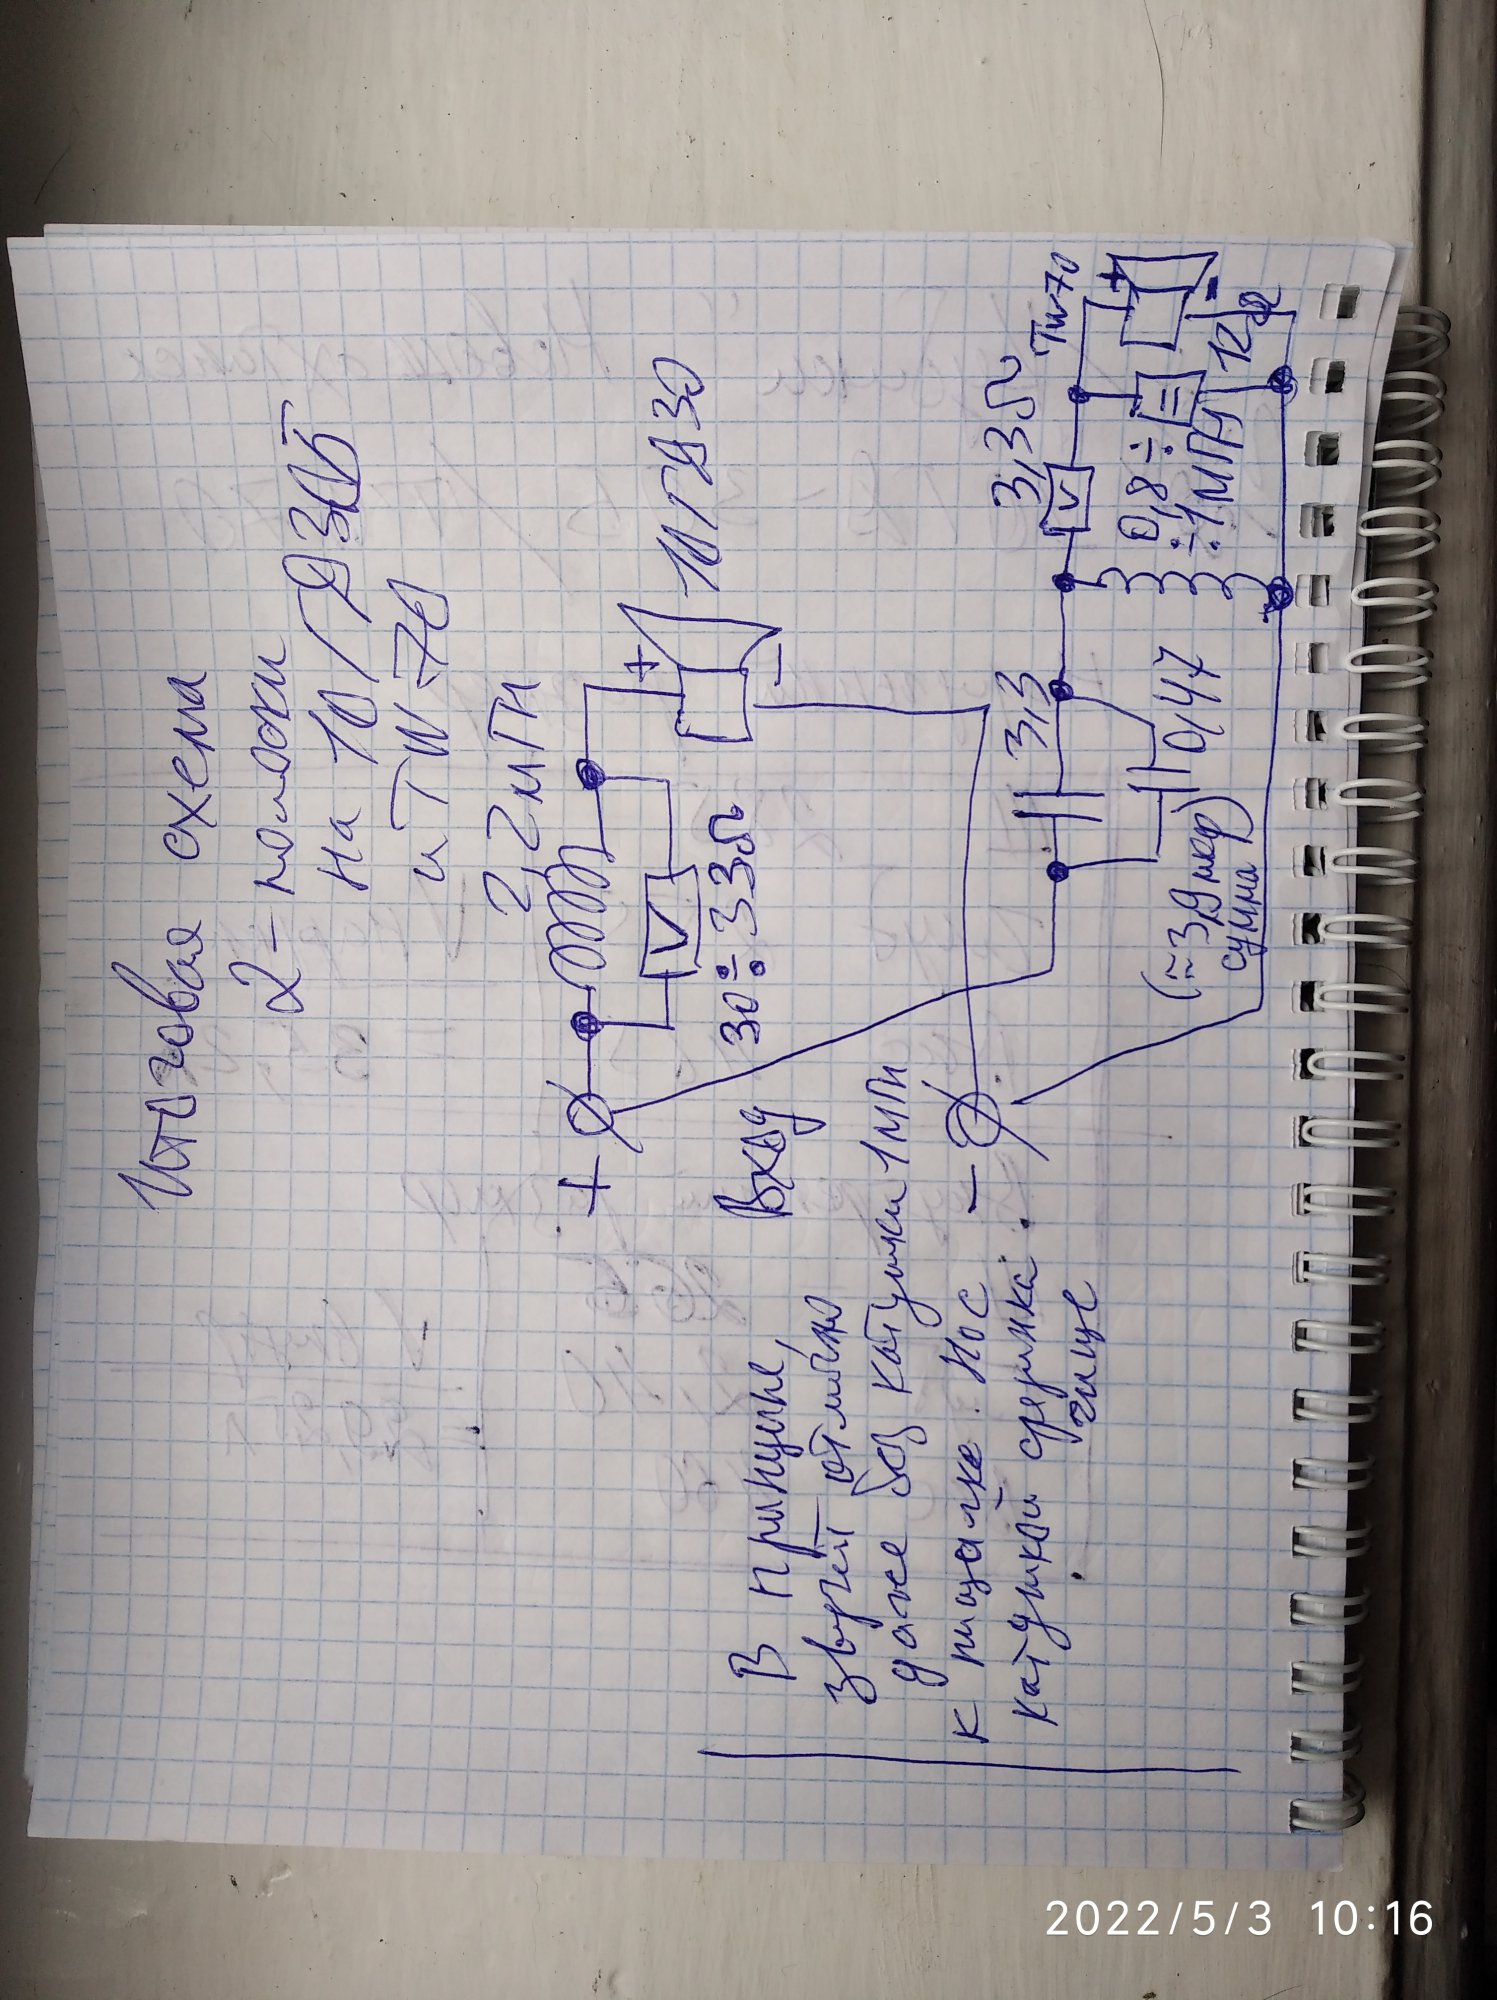 Итоговая схема
2-полоски
на 10ГД30Б
и TW-70
2,2мГн
+
+
-
10ГД30
30÷33Ω
Вход
-
3,3
0,47
(≈3,9мкф)
сумма
3,3Ω
TW70
+
-
0,8÷
÷1мГн
12Ω
В принципе,
звучит отлично
даже без катушки 1мГн
к пищалке. Но с
катушкой серединка
чище
2022/5/3 10:16